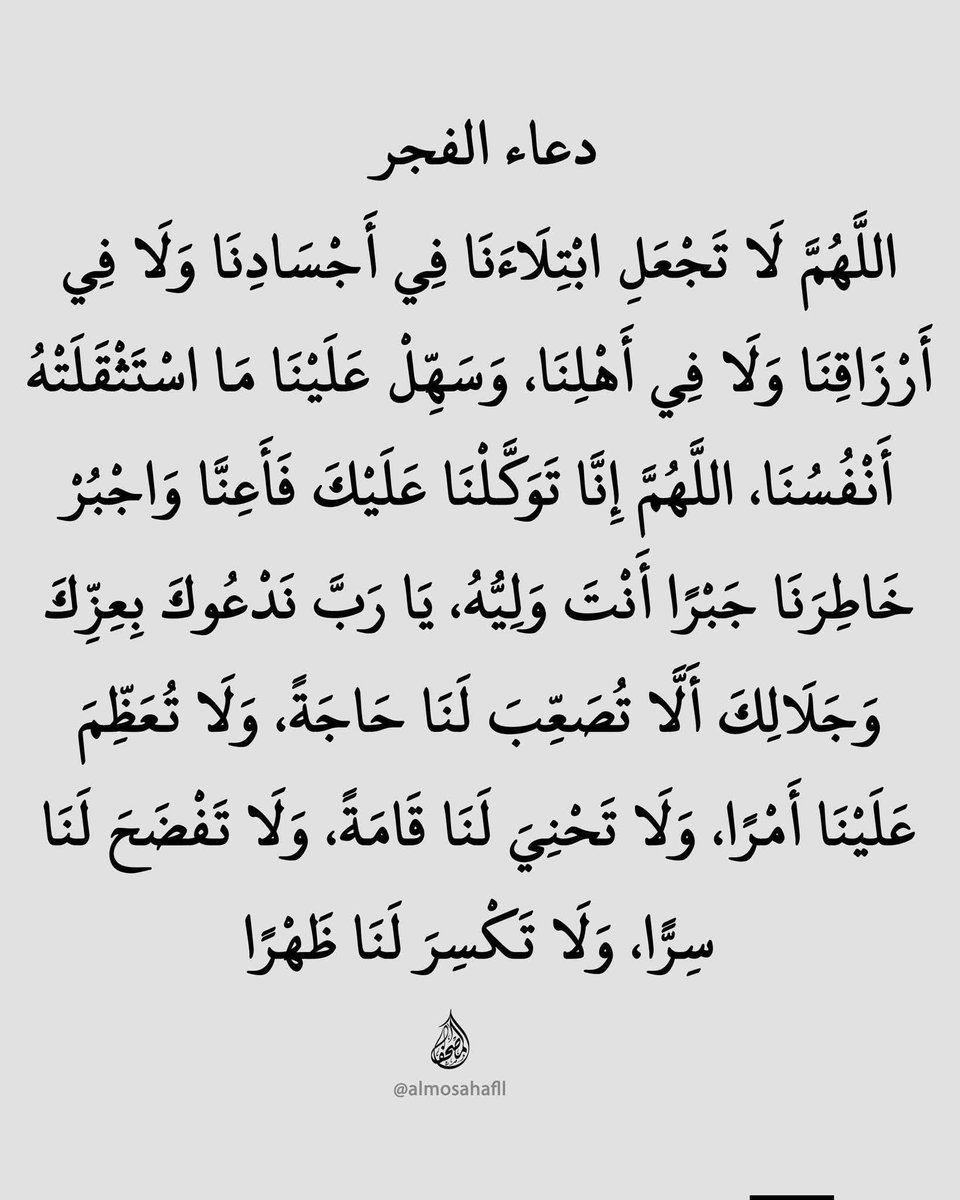 دعاء الفجر
اللَّهُمَّ لَا تَجْعَلِ ابْتِلَاءَنَا فِي أَجْسَادِنَا وَلَا فِي
أَرْزَاقِنَا وَلَا فِي أَهْلِنَا، وَسَهِّلْ عَلَيْنَا مَا اسْتَثْقَلَتْهُ
أَنْفُسُنَا، اللَّهُمَّ إِنَّا تَوَكَّلْنَا عَلَيْكَ فَأَعِنَّا وَاجْبُرْ
خَاطِرَنَا جَبْرًا أَنْتَ وَلِيُّهُ، يَا رَبَّ نَدْعُوكَ بِعِزِّكَ
وَجَلَالِكَ أَلَّا تُصَعِّبَ لَنَا حَاجَةً، وَلَا تُعَظِّمَ
عَلَيْنَا أَمْرًا، وَلَا تَحْنِيَ لَنَا قَامَةً، وَلَا تَفْضَحَ لَنَا
سِرًّا، وَلَا تَكْسِرَ لَنَا ظَهْرًا
المصحف
@almosahafll